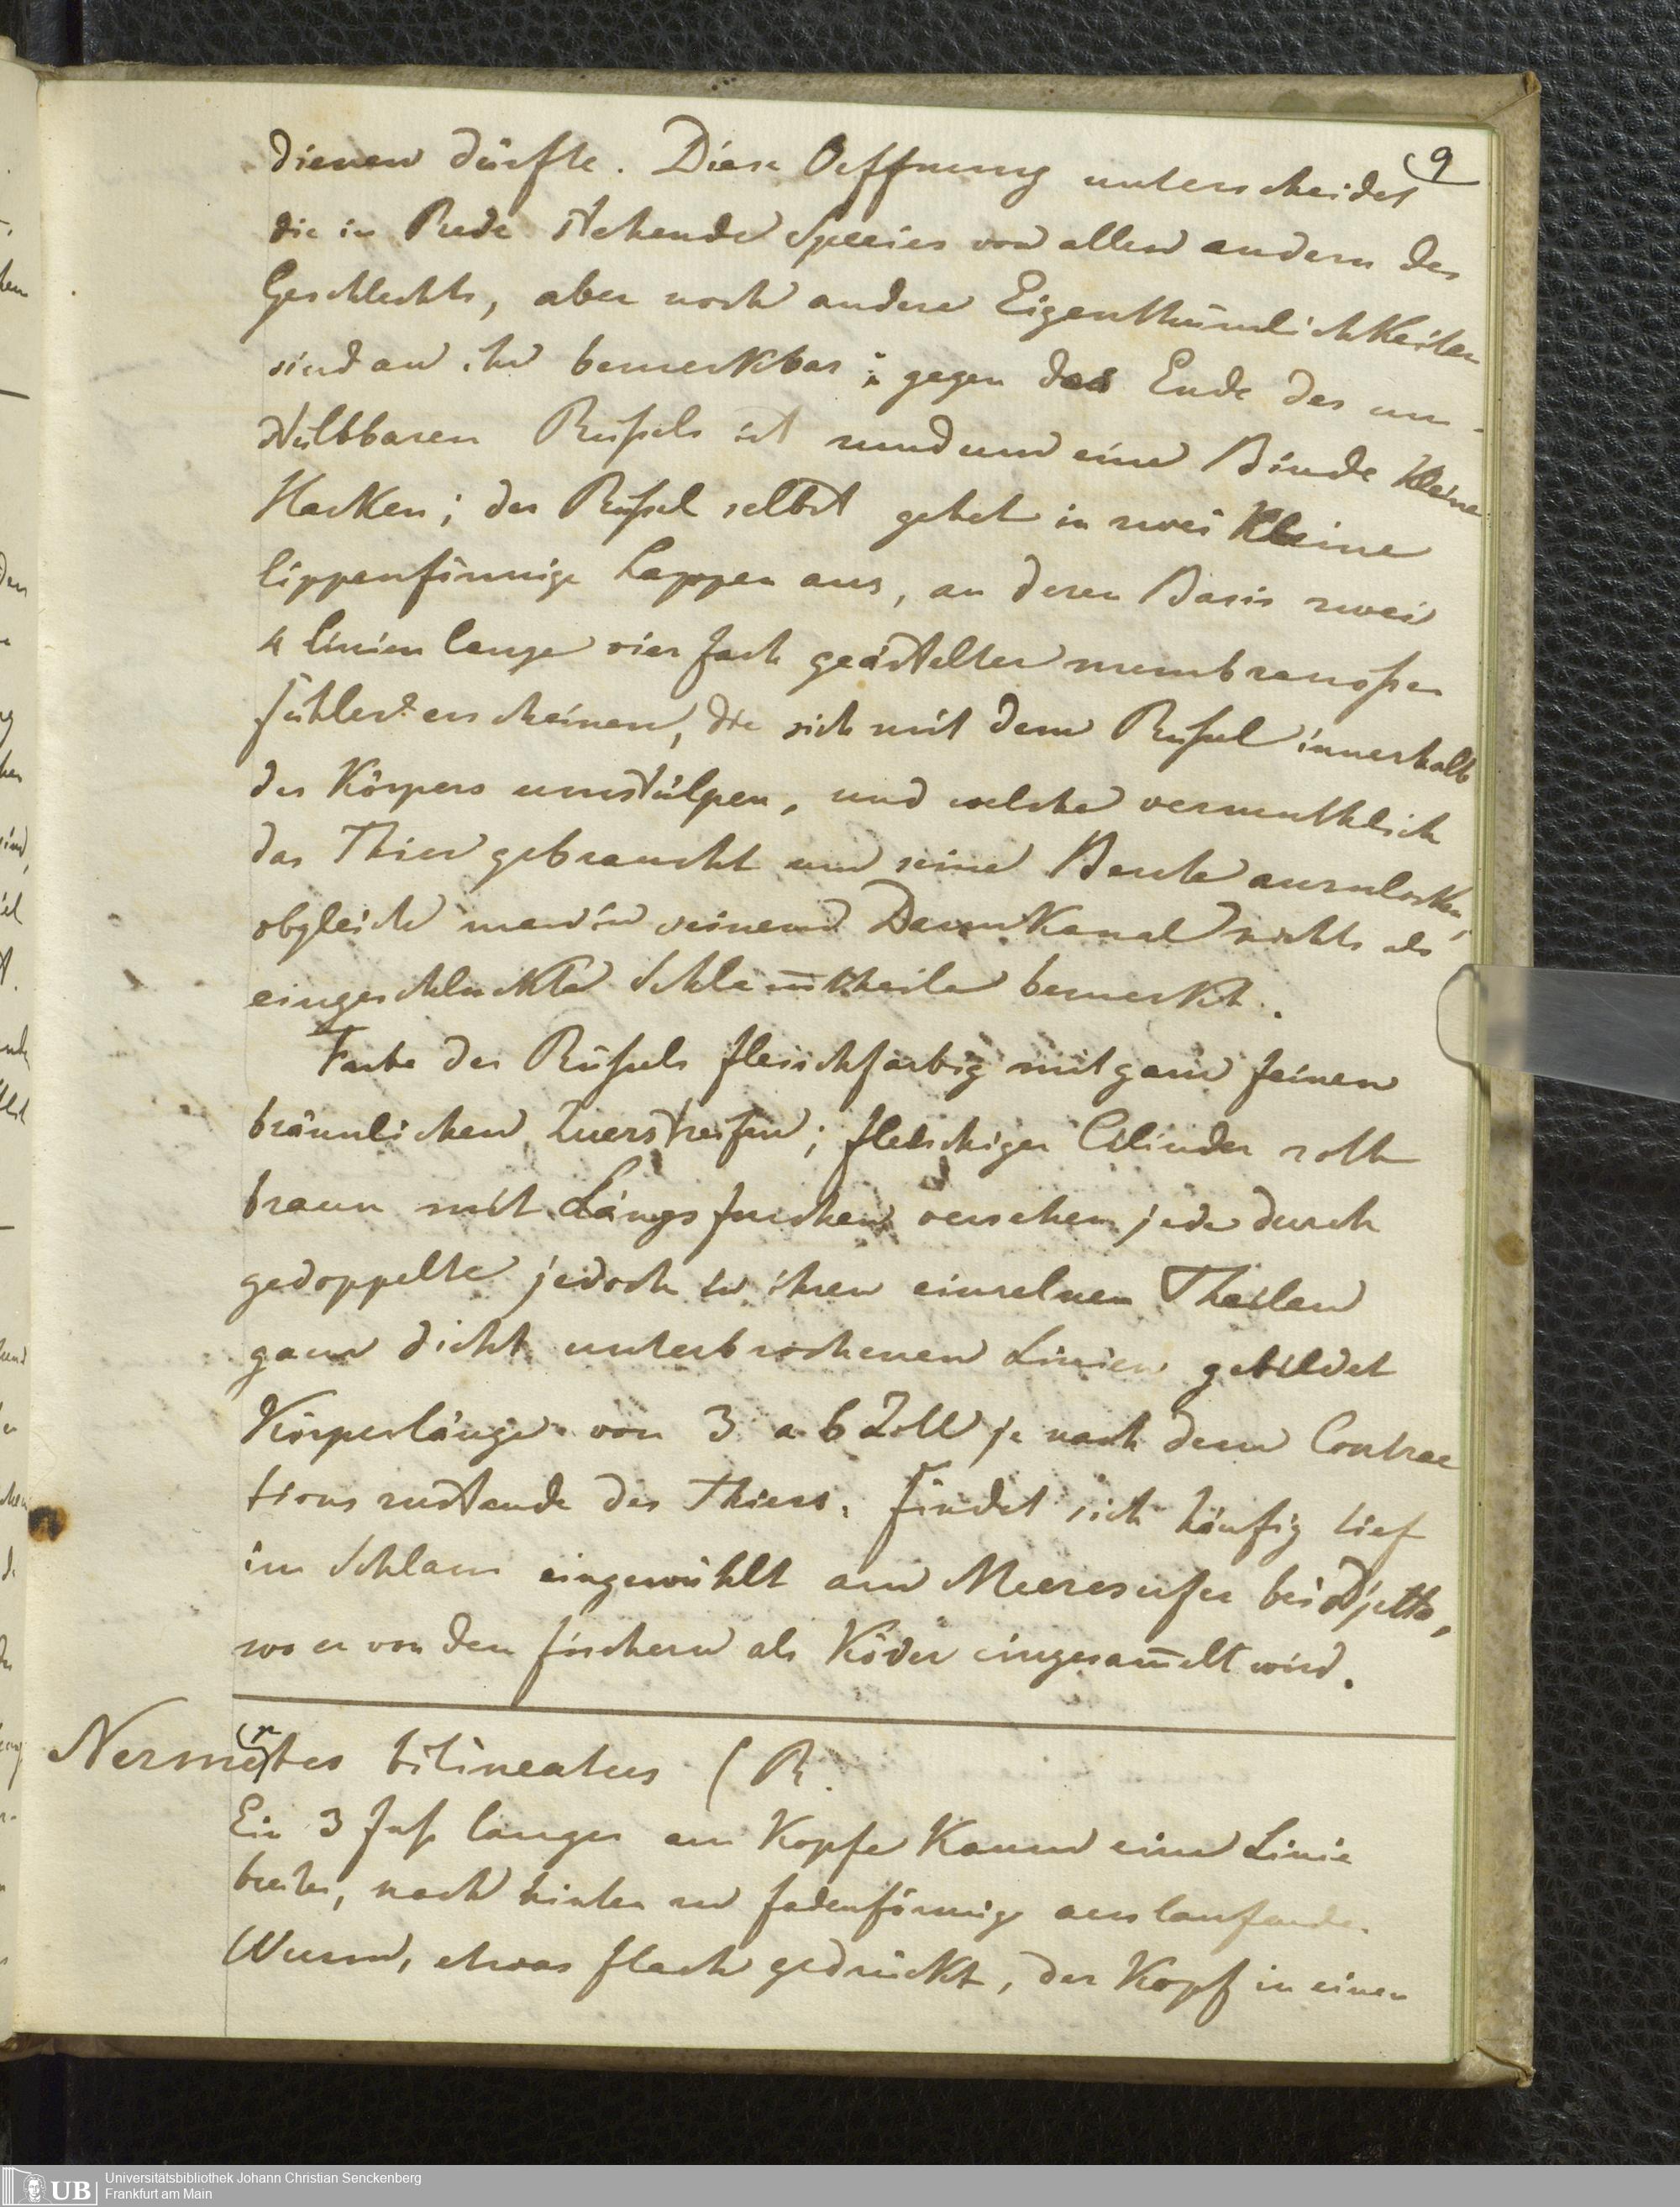 9
dienen dürfte. Diese Oeffnung unterscheidet
die in Rede stehende Species von allen andern des
Geschlechts, aber noch andere Eigenthümlichkeiten
sind an ihr bemerkbar; gegen das Ende des um-
stülbbaren Rüßels ist rundum eine Binde kleine
Hacken; der Rüßel selbst gehet in zwei kleine
lippenförmige Lappen aus, an deren Basis zwei
4 Linien lange vierfach geästelter membranoßer
Fühler erscheinen, die sich mit dem Rüßel innerhalb
des Körpers umstülpen, und welche vermuthlich
das Thier gebraucht um seine Beute anzulocken,
obgleich man in seinem Darmkanal nichts als
eingeschluckte Schlam̄theile bemerkt.
Farbe des Rüßels fleischfarbig mit ganz feinen
bräunlichen Querstreifen; fleischiger Cilinder roth
braun mit Längsfurchen versehen jede durch
gedoppelte jedoch in ihren einzelnen Theilen
ganz dicht unterbrochenen Linien gebildet
Körperlänge von 3 a 6 Zoll je nach dem Contrac
tions zustande des Thiers. Findet sich häufig tief
im Schlam eingewühlt am Meeresufer bei Djetta,
wo er von den Fischern als Köder eingesam̄elt wird.
Nemertes bilineatus (R.
Ein 3 Fuß langer am Kopfe kaum eine Linie
breiter, nach hinten zu fadenförmig auslaufender
Wurm, etwas flach gedrückt, der Kopf in einen
UB
Universitätsbibliothek Johann Christian Senckenberg
Frankfurt am Main